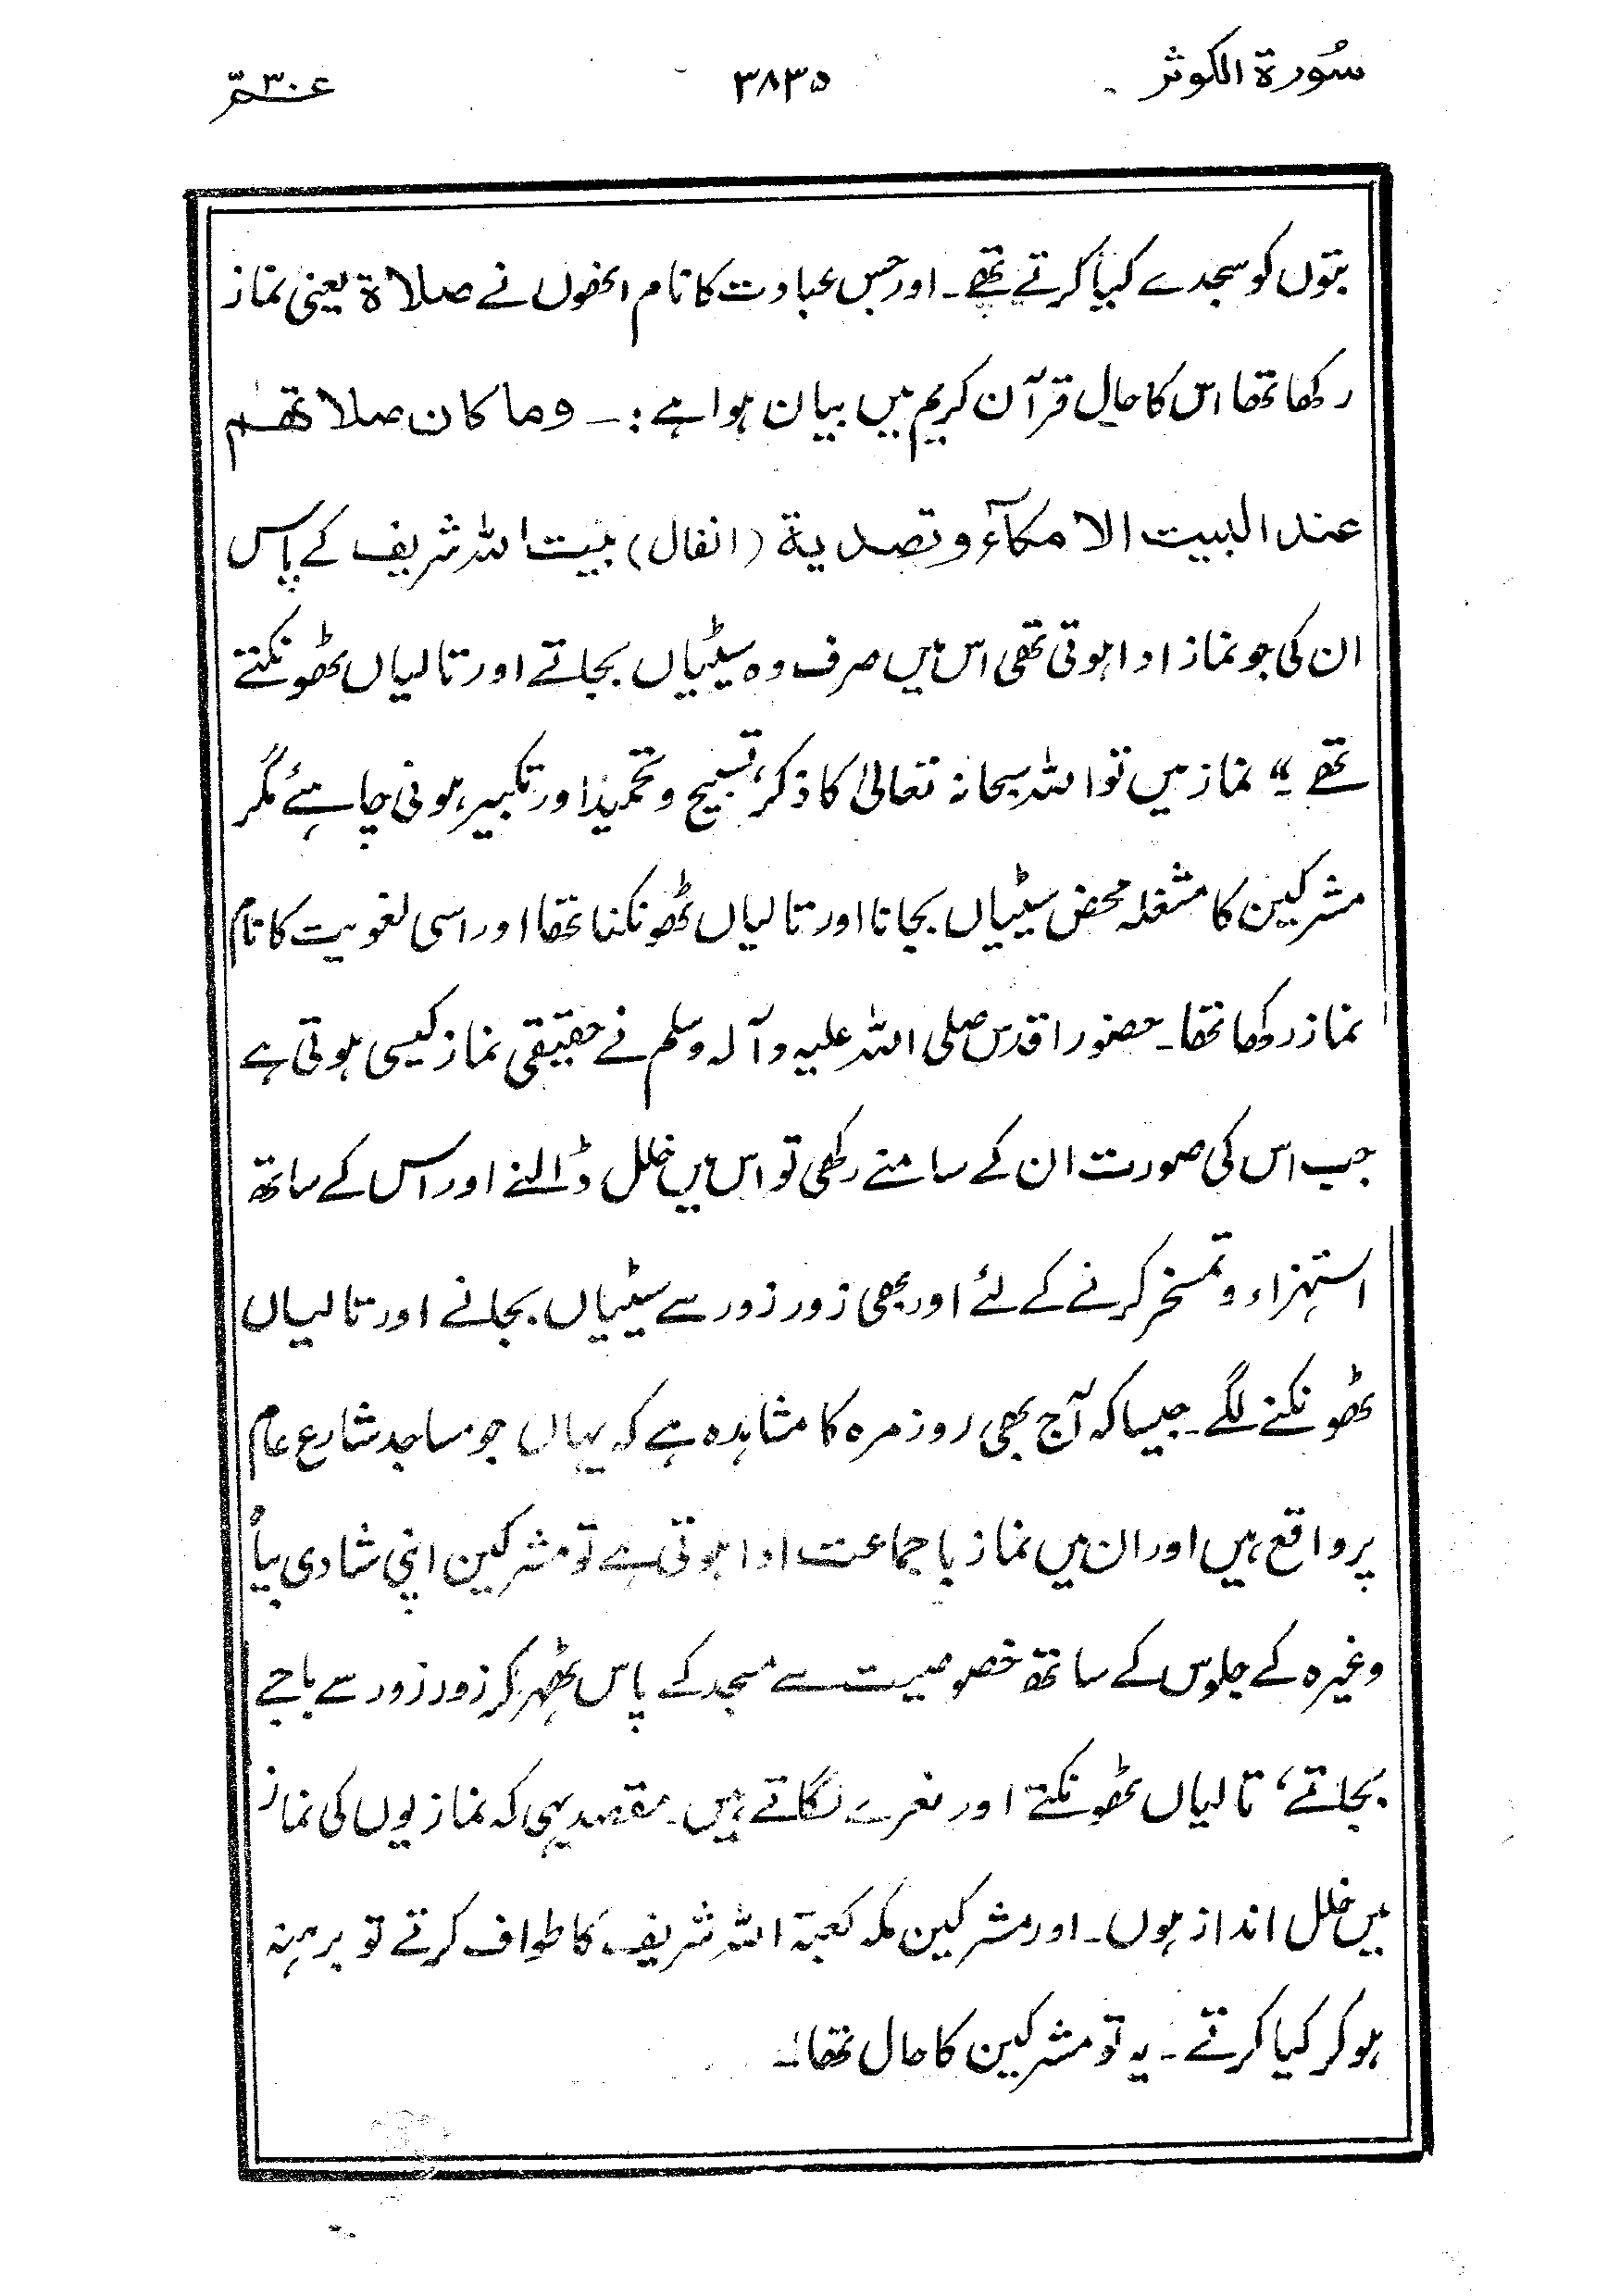 سُورۃ الکوثر ۳۸۳۵ عمّ ۳۰
بتوں کو سجدے کیا کرتے تھے۔ اور جس عبادت کا نام انھوں نے صلاة یعنی نماز
رکھا تھا اس کا حال قرآن کریم میں بیان ہوا ہے :۔ وما کان صلاتھم
عند البیت الا مکآء و تصدیة (انفال) بیت اللہ شریف کے پاس
ان کی جو نماز ادا ہوتی تھی اس میں صرف وہ سیٹیاں بجاتے اور تالیاں ٹھونکتے
تھے ؛؛ نماز میں تو اللہ سبحانہ تعالیٰ کا ذکر، تسبیح و تحمید اور تکبیر ہونی چاہئے مگر
مشرکین کا مشغلہ محض سیٹیاں بجانا اور تالیاں ٹھونکنا تھا اور اسی لغویت کا نام
نماز رکھا تھا۔ حضور اقدس صلی اللہ علیہ و آلہ وسلم نے حقیقی نماز کیسی ہوتی ہے
جب اس کی صورت ان کے سامنے رکھی تو اس میں خلل ڈالنے اور اس کے ساتھ
استہزاء و تمسخر کرنے کے لئے اور بھی زور زور سے سیٹیاں بجانے اور تالیاں
ٹھونکنے لگے۔ جیسا کہ آج بھی روز مرہ کا مشاہدہ ہے کہ یہاں جو مساجد شارع عام
پر واقع ہیں اور ان میں نماز با جماعت ادا ہوتی ہے تو مشرکین اپنی شادی بیاہ
وغیرہ کے جلوس کے ساتھ خصوصیت سے مسجد کے پاس ٹھہر کر زور زور سے باجے
بجاتے، تالیاں ٹھونکتے اور نعرے لگاتے ہیں۔ مقصد یہی کہ نمازیوں کی نماز
میں خلل انداز ہوں۔ اور مشرکین مکہ کعبۃ اللہ شریف کا طواف کرتے تو برہنہ
ہو کر کیا کرتے۔ یہ تو مشرکین کا حال تھا۔